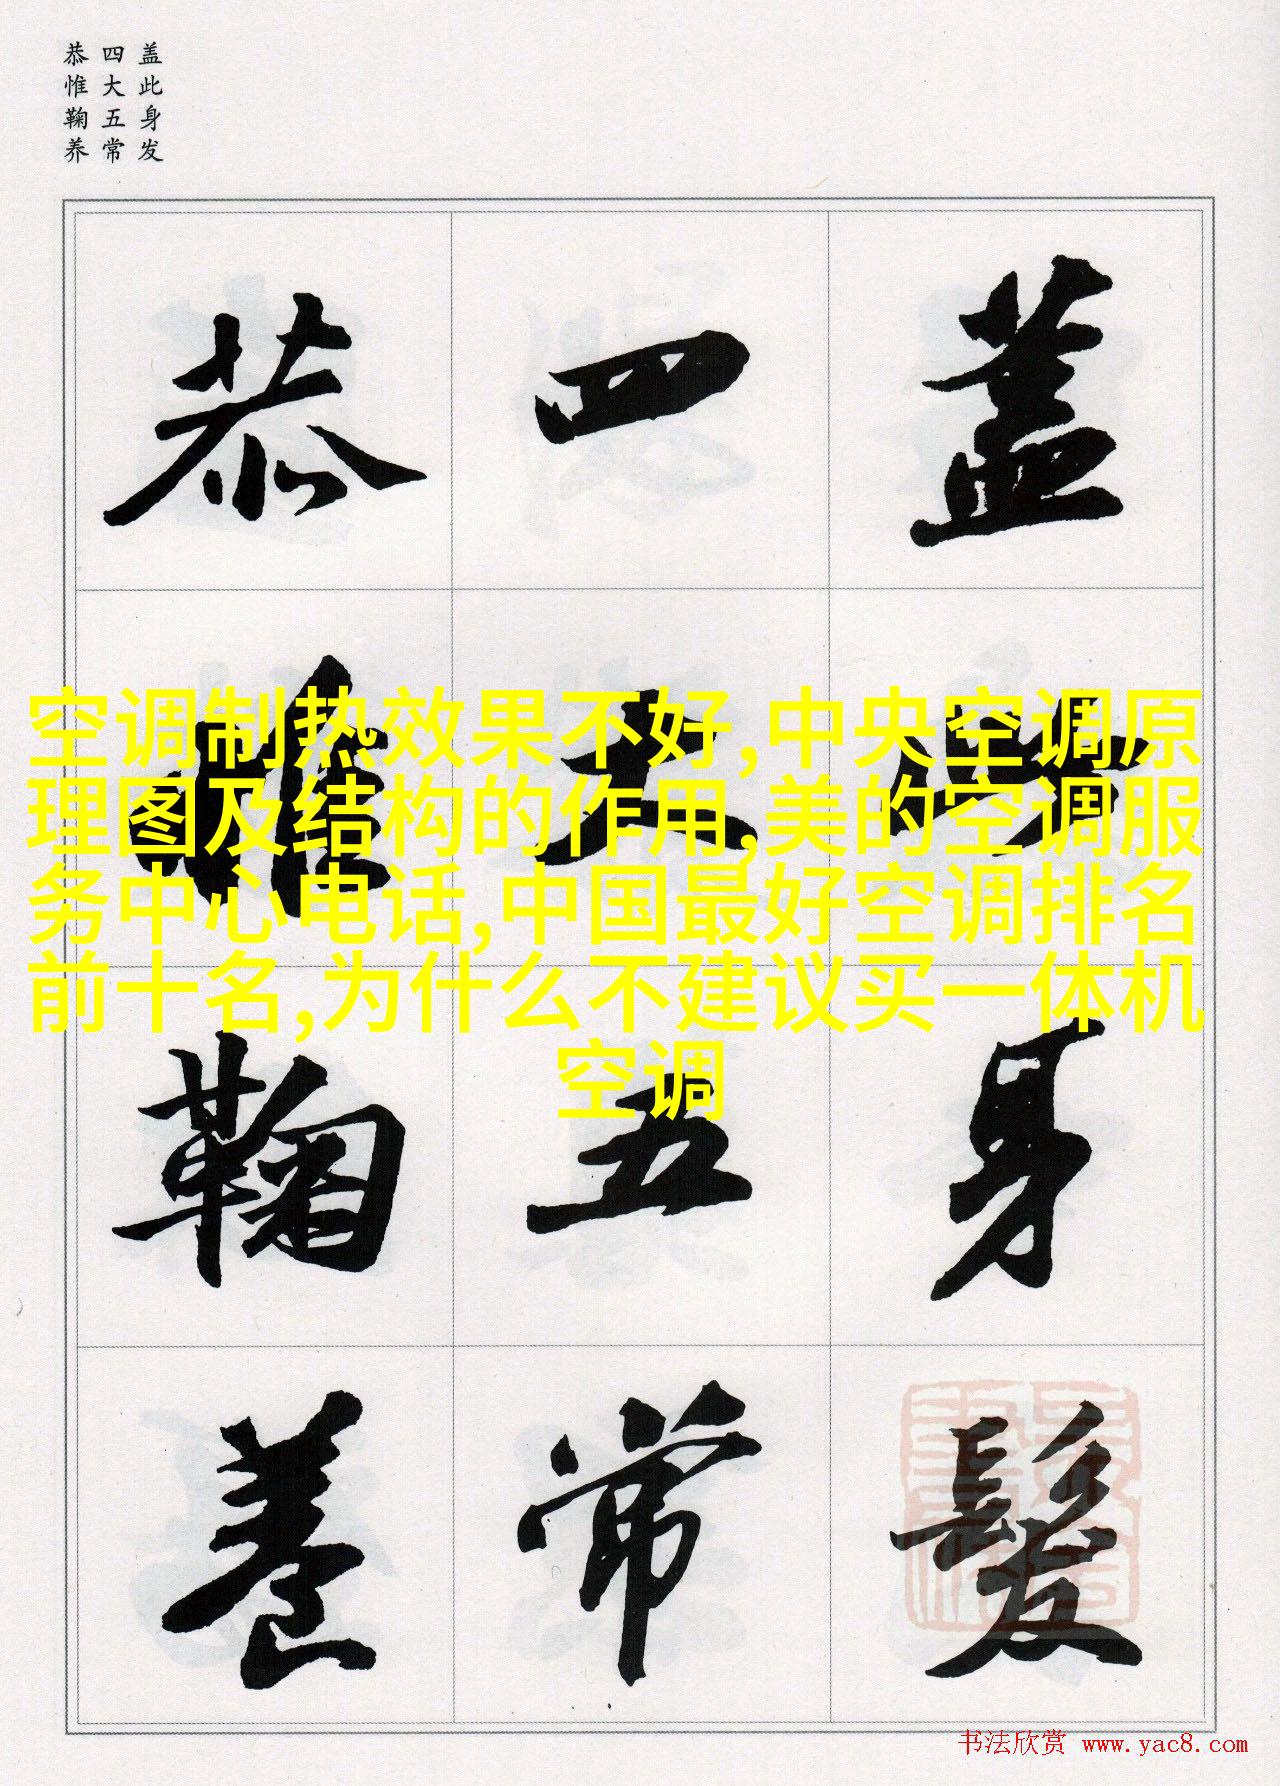 盖此身发
四大五常
恭惟鞠养
盖此身髮
四大五常
恭惟鞠養
空调制热效果不好,中央空调原
理图及结构的作用,美的空调服
务中心电话,中国最好空调排名
前十名,为什么不建议买一体机
空调
书法欣赏 www.yac8.com